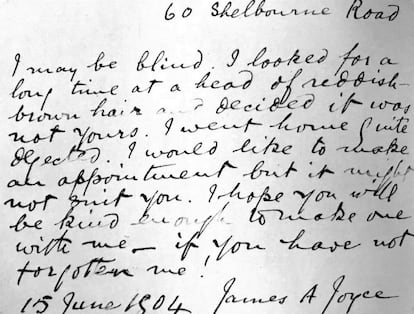 60 Shelbourne Road
I may be blind. I looked for a
long time at a head of reddish-
brown hair and decided it was
not yours. I went home quite
dejected. I would like to make
an appointment but it might
not suit you. I hope you will
be kind enough to make one
with me — if you have not
forgotten me!
15 June 1904 James A Joyce